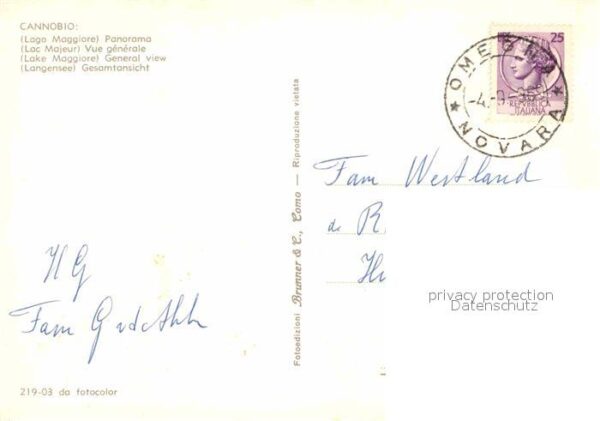 CANNOBIO:
(Lago Maggiore) Panorama
(Lac Majeur) Vue générale
(Lake Maggiore) General view
(Langensee) Gesamtansicht
25
REPVBBLICA
ITALIANA
NOVARA
Fam Westland
de R
H G
Fam
privacy protection
Datenschutz
Fotoedizioni Brunner & C., Como — Riproduzione vietata
219-03 da fotocolor